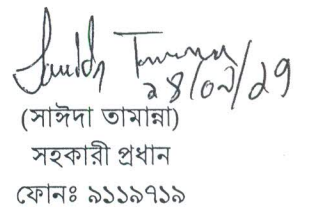 ২৪/০৯/২৭
(সাঈদা তামান্না)
সহকারী প্রধান
ফোনঃ ৯১১৯৭১৯